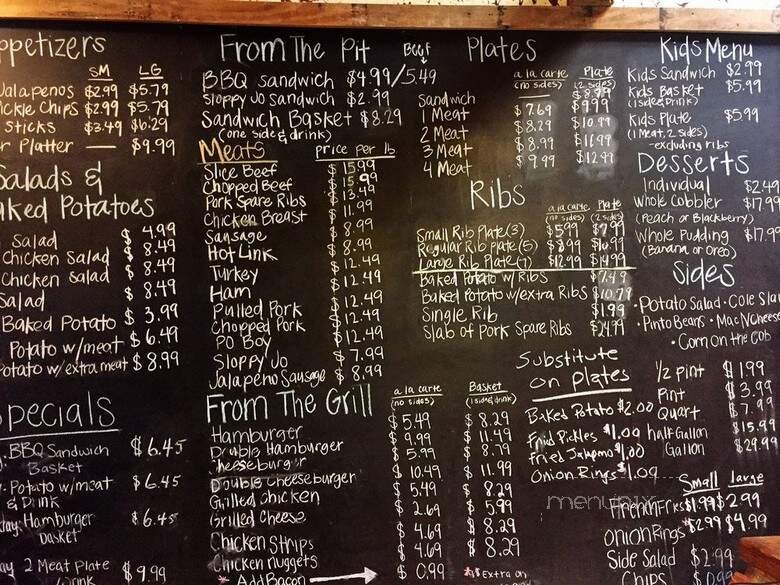 ppetizers
SM LG
Jalapenos $2.99 $5.79
ickle Chips $2.99 $5.79
Sticks $3.49 $6.29
r Platter — $9.99
Salads &
ked Potatoes
Salad $ 4.99
Chicken Salad $ 8.49
Chicken Salad $ 8.49
Salad $ 8.49
Baked Potato $ 3.99
Potato w/meat $ 6.49
otato w/extra meat $ 8.99
pecials
BBQ Sandwich $6.45
Basket
Potato w/meat $6.45
& Drink
Hamburger $6.45
Basket
2 Meat Plate $9.99
From The Pit
Beef
BBQ Sandwich $4.99/5.49
Sloppy Jo Sandwich $2.99
Sandwich Basket $8.29
(one side & drink)
Meats price per lb
Slice Beef $ 15.99
Chopped Beef $ 15.99
Pork Spare Ribs $ 13.49
Chicken Breast $ 11.99
Sausage $ 8.99
Hot Link $ 8.99
Turkey $ 12.49
Ham $ 12.49
Pulled Pork $ 12.49
Chopped Pork $ 12.49
Po Boy $ 12.49
Sloppy Jo $ 7.99
Jalapeno Sausage $ 8.99
From The Grill
a la carte Basket
(no sides) (1 side & drink)
Hamburger $ 5.49 $ 8.29
Double Hamburger $ 9.99 $ 11.49
Cheeseburger $ 5.99 $ 8.79
Double Cheeseburger $ 10.49 $ 11.99
Grilled Chicken $ 5.49 $ 8.29
Grilled Cheese $ 2.69 $ 5.99
Chicken Strips $ 4.69 $ 8.29
Chicken nuggets $ 4.69 $ 8.29
* Add Bacon $ 0.99 * $ Extra on
Plates
a la carte Plate
(no sides) (2 sides)
Sandwich $8.99
1 Meat $ 7.69 $ 9.99
2 Meat $ 8.29 $ 10.99
3 Meat $ 8.99 $ 11.99
4 Meat $ 9.99 $ 12.99
Ribs
a la carte Plate
(no sides) (2 sides)
Small Rib Plate (3) $ 5.99 $ 7.99
Regular Rib Plate (5) $ 8.99 $ 10.99
Large Rib Plate (7) $ 12.99 $ 14.99
Baked Potato w/ Ribs $ 7.49
Baked Potato w/extra Ribs $ 10.79
Single Rib $ 1.99
Slab of Pork Spare Ribs $ 24.99
Substitute
on plates
Baked Potato $2.00
Fried Pickles $1.00
Fried Jalapeno $1.00
Onion Rings $1.00
menupix
Kids Menu
Kids Sandwich $2.99
Kids Basket $5.99
(1 side & Drink)
Kids Plate $5.99
(1 Meat, 2 sides)
-excluding ribs
Desserts
Individual $2.49
Whole Cobbler $17.99
(Peach or Blackberry)
Whole Pudding $17.99
(Banana or Oreo)
Sides
• Potato Salad • Cole Slaw
• Pinto Beans • Mac N Cheese
• Corn on the Cob
1/2 pint $ 1.99
Pint $ 3.99
Quart $ 7.99
half Gallon $15.99
Gallon $29.99
Small large
French Fries $1.99 $2.99
Onion Rings $2.99 $4.99
Side Salad $2.99